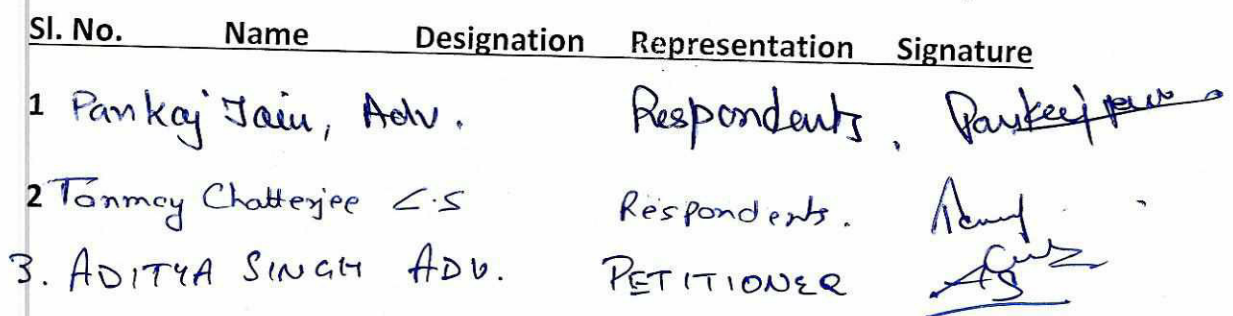 Sl. No. Name Designation Representation Signature
1 Pankaj Jain, Adv. Respondents, Pankaj Jain
2 Tanmoy Chatterjee C.S Respondents.
3. ADITYA SINGH ADV. PETITIONER